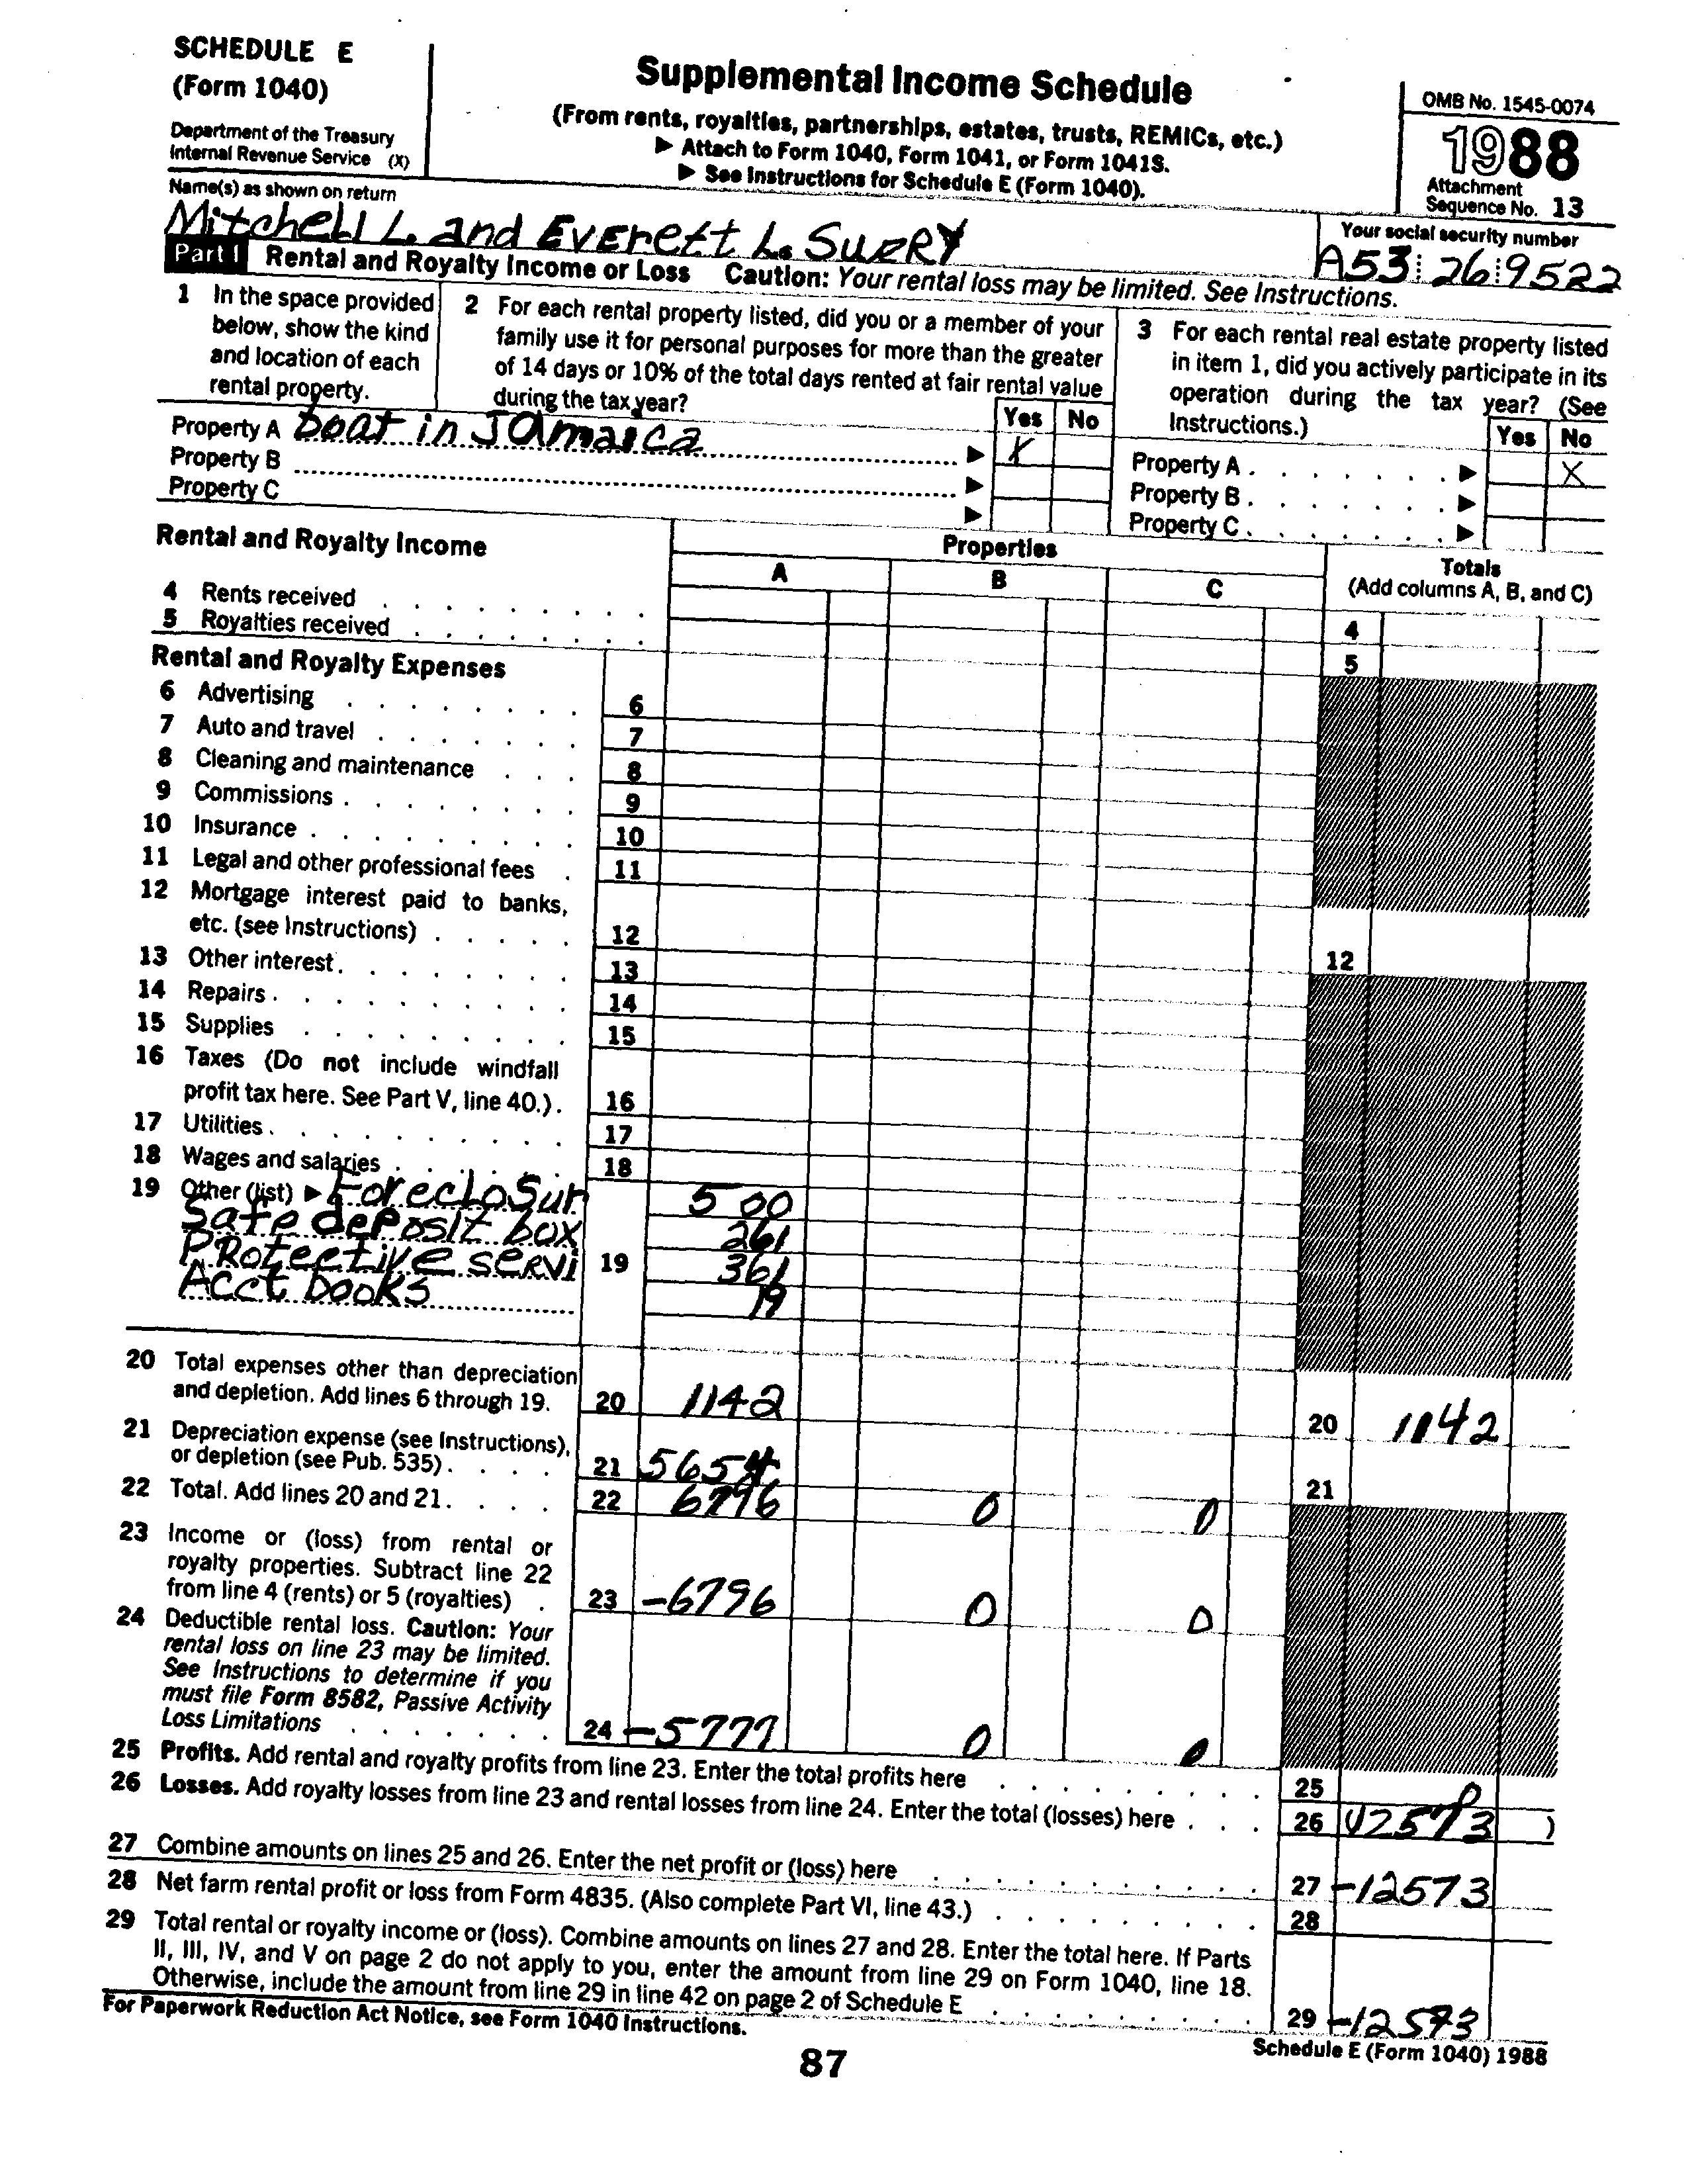 SCHEDULE E
(Form 1040)
Department of the Treasury
Internal Revenue Service (X)
Supplemental Income Schedule
(From rents, royalties, partnerships, estates, trusts, REMICs, etc.)
▶ Attach to Form 1040, Form 1041, or Form 1041S.
▶ See Instructions for Schedule E (Form 1040).
OMB No. 1545-0074
1988
Attachment
Sequence No. 13
Name(s) as shown on return
Mitchell L. and Everett L. Surry
Your social security number
A53 26 9522
Part I Rental and Royalty Income or Loss Caution: Your rental loss may be limited. See Instructions.
1 In the space provided
below, show the kind
and location of each
rental property.
2 For each rental property listed, did you or a member of your
family use it for personal purposes for more than the greater
of 14 days or 10% of the total days rented at fair rental value
during the tax year?
3 For each rental real estate property listed
in item 1, did you actively participate in its
operation during the tax year? (See
Instructions.)
Yes No
Yes No
Property A boat in Jamaica ▶ X
Property B ▶
Property C ▶
Property A . . . . . . . ▶ X
Property B . . . . . . . ▶
Property C . . . . . . . ▶
Rental and Royalty Income
Properties
A B C
Totals
(Add columns A, B, and C)
4 Rents received 4
5 Royalties received 5
Rental and Royalty Expenses
6 Advertising 6
7 Auto and travel 7
8 Cleaning and maintenance 8
9 Commissions 9
10 Insurance 10
11 Legal and other professional fees 11
12 Mortgage interest paid to banks,
etc. (see Instructions) 12 12
13 Other interest 13
14 Repairs 14
15 Supplies 15
16 Taxes (Do not include windfall
profit tax here. See Part V, line 40.) 16
17 Utilities 17
18 Wages and salaries 18
19 Other (list) ▶ Foreclosur 500
Safe deposit box 261
Protective servi 19 361
Acct books 19
20 Total expenses other than depreciation
and depletion. Add lines 6 through 19. 20 1142 20 1142
21 Depreciation expense (see Instructions),
or depletion (see Pub. 535) 21 5654 21
22 Total. Add lines 20 and 21 22 6796 0 0
23 Income or (loss) from rental or
royalty properties. Subtract line 22
from line 4 (rents) or 5 (royalties) 23 -6796 0 0
24 Deductible rental loss. Caution: Your
rental loss on line 23 may be limited.
See Instructions to determine if you
must file Form 8582, Passive Activity
Loss Limitations 24 -5777 0 0
25 Profits. Add rental and royalty profits from line 23. Enter the total profits here 25 0
26 Losses. Add royalty losses from line 23 and rental losses from line 24. Enter the total (losses) here 26 (12573)
27 Combine amounts on lines 25 and 26. Enter the net profit or (loss) here 27 -12573
28 Net farm rental profit or loss from Form 4835. (Also complete Part VI, line 43.) 28
29 Total rental or royalty income or (loss). Combine amounts on lines 27 and 28. Enter the total here. If Parts
II, III, IV, and V on page 2 do not apply to you, enter the amount from line 29 on Form 1040, line 18.
Otherwise, include the amount from line 29 in line 42 on page 2 of Schedule E 29 -12573
For Paperwork Reduction Act Notice, see Form 1040 Instructions.
Schedule E (Form 1040) 1988
87